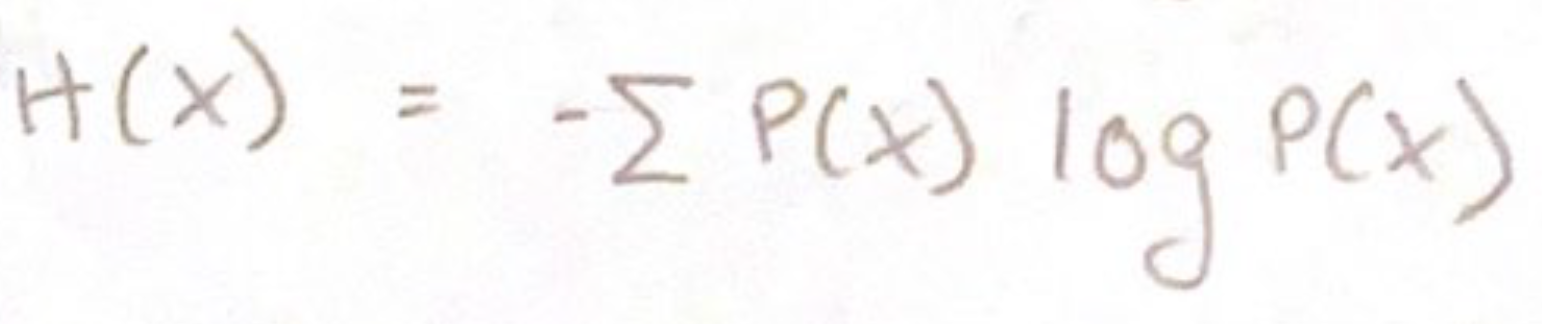 H(x) = -∑ P(x) log P(x)